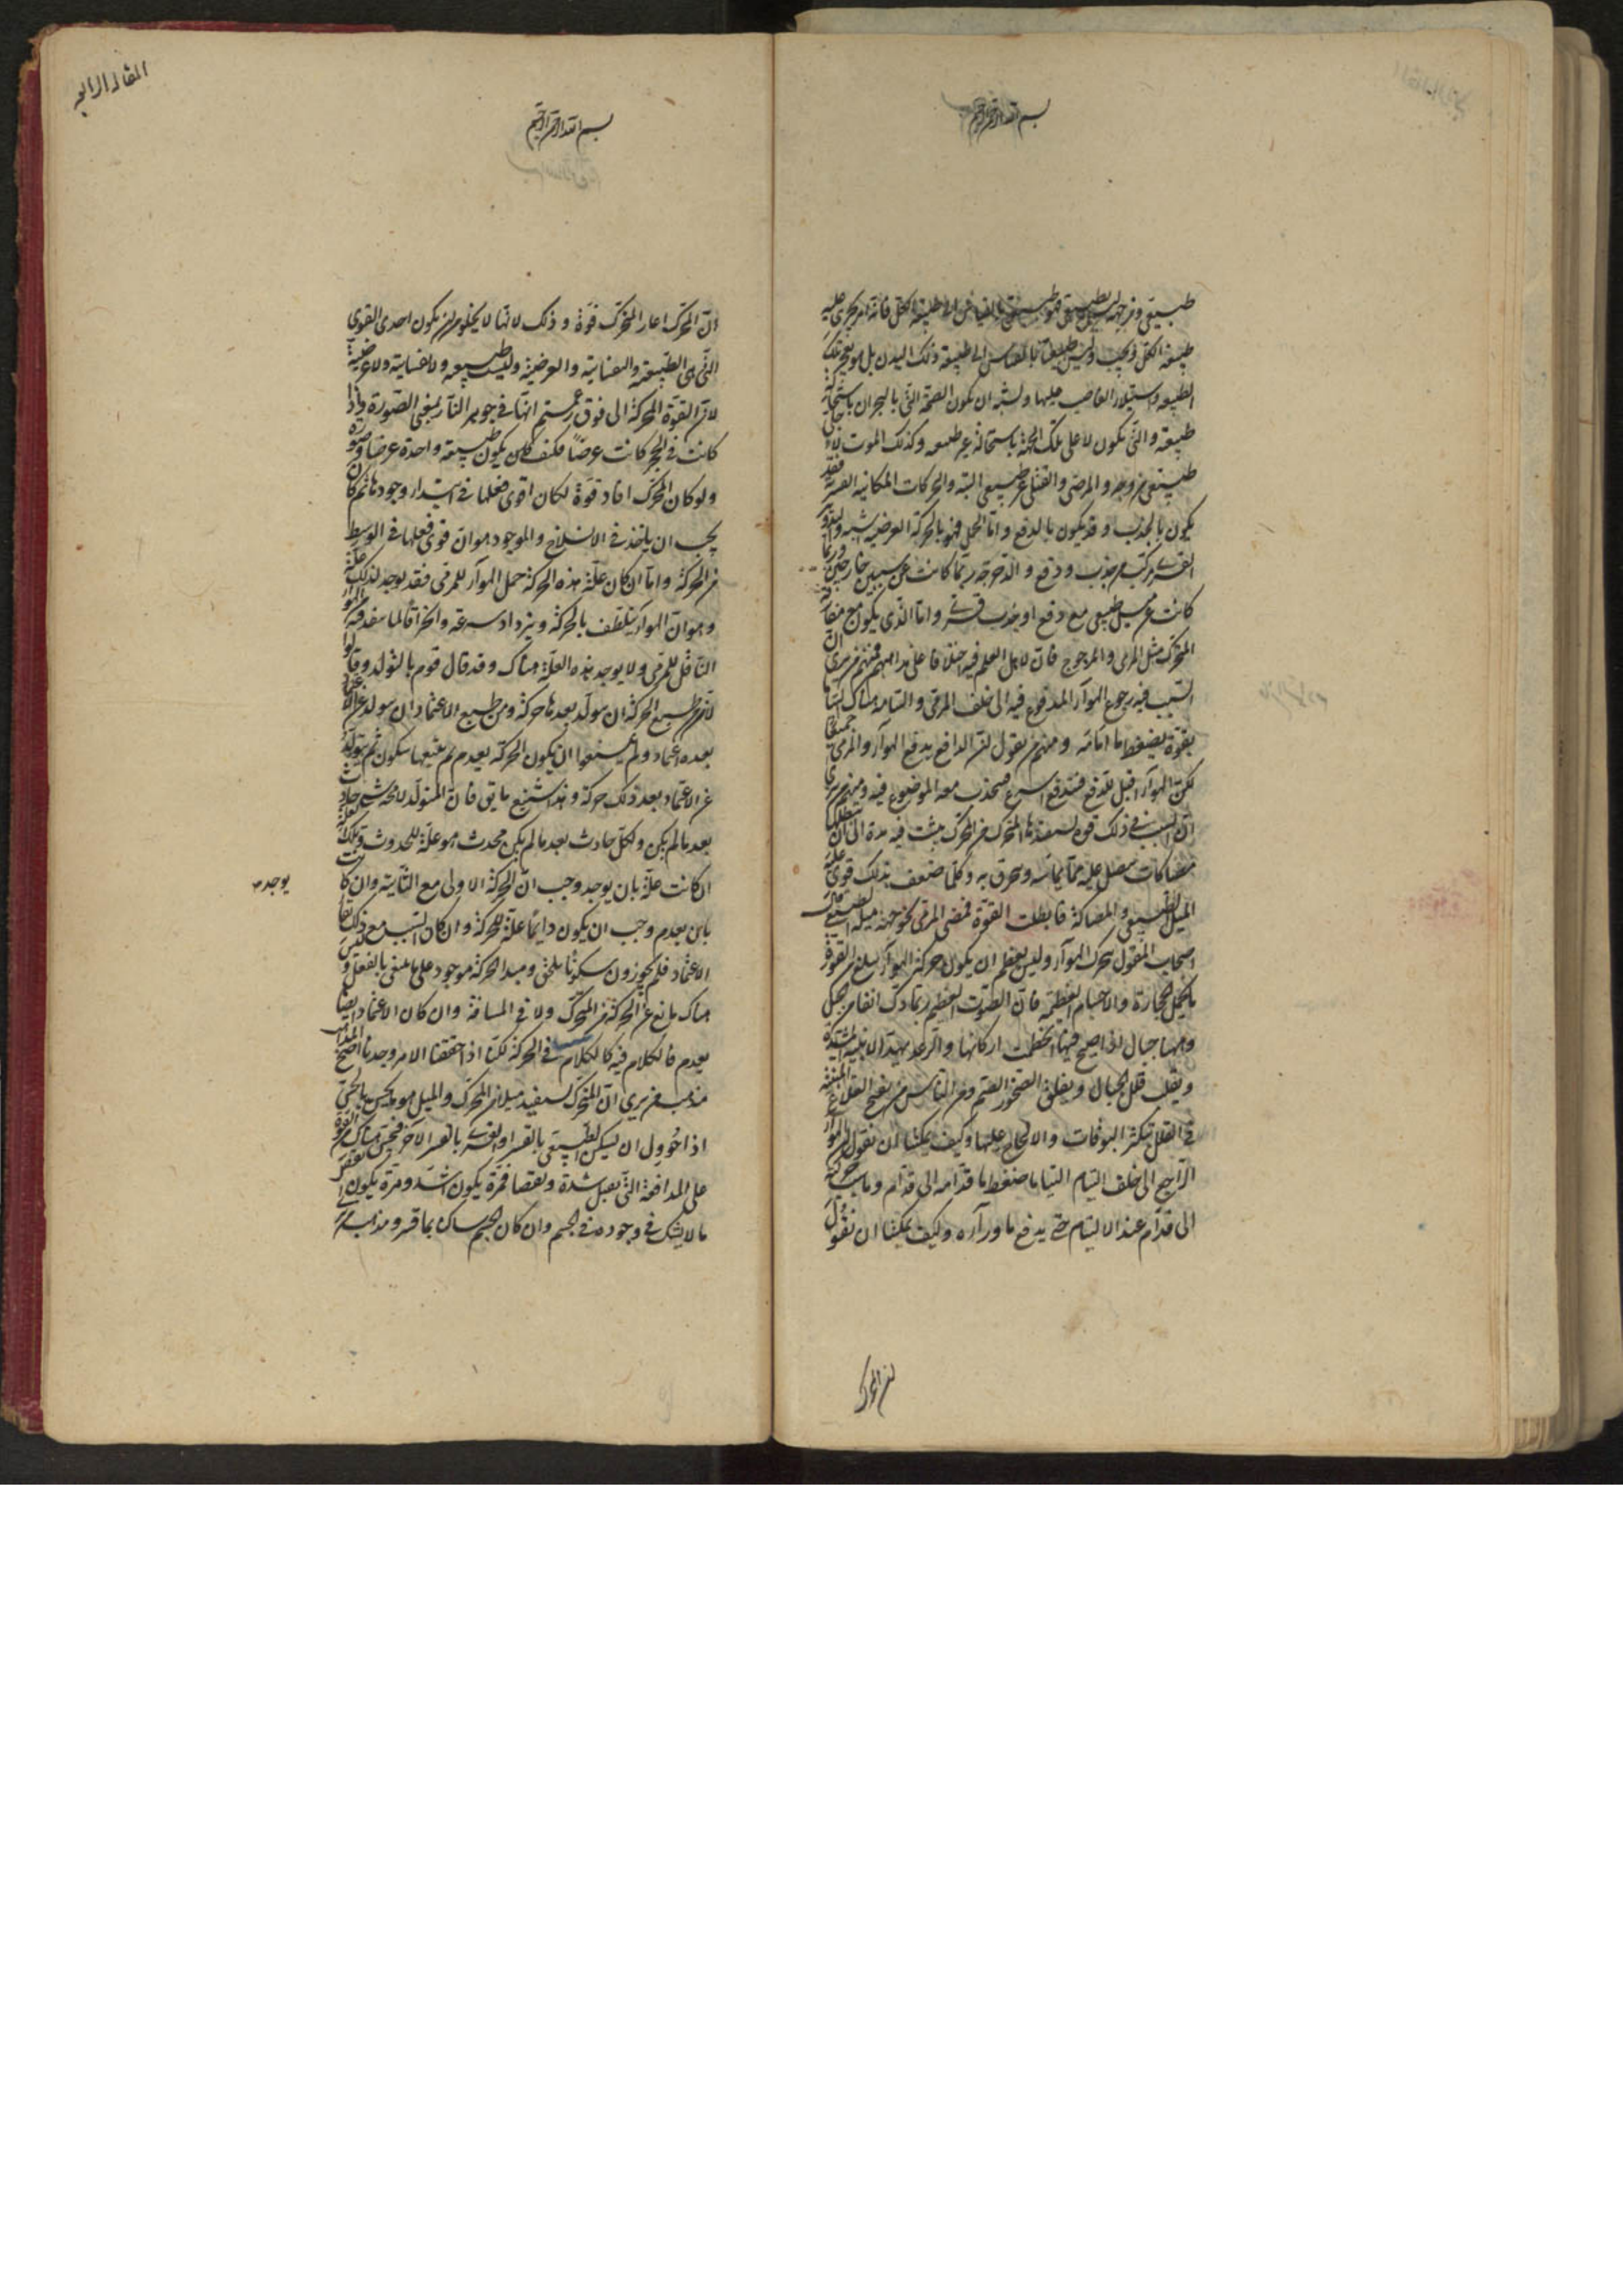 بسم الله الرحمن الرحيم
طبيعة الكل ويجب وليس طبيعيا بالقياس الى طبيعة ذلك البدن بل هو بعجز تلك
الطبيعة واستيلاء الغاصب عليها ويشبه ان تكون الصحة التى بالبحران باستحالة
طبيعية والتى تكون لا على تلك الجهة باستحالة غير طبيعية وكذلك الموت
طبيعى من وجه والمرضى والقتلى غير طبيعى البتة والحركات المكانية القسرية فقد
يكون بالجذب وقد يكون بالدفع واما الحمل فهو بالحركة العرضية اشبه والتدوير
القسرى مركب من جذب ودفع والدحرجة ربما كانت عن سببين خارجين وربما
كانت عن ميل طبيعى مع دفع او جذب قسرى واما الذى يكون مع مفارقة
المتحرك مثل المرمى والمدحرج فان لاهل العلم فيه اختلافا على مذاهبهم فمنهم من يرى ان
السبب فيه رجوع الهواء المدفوع فيه الى خلف المرمى والتيامه هناك التياما
بقوة يضغط ما امامه ومنهم من يقول ان الدافع يدفع الهواء والمرمى جميعا
لكن الهواء اقبل للدفع فيندفع اسرع فيجذب معه الموضوع فيه ومنهم من يرى
ان السبب فى ذلك قوة يستفيدها المتحرك من المحرك يثبت فيه مدة الى ان تبطلها
مصاكات تتصل عليه مما يماسه وينخرق به وكلما ضعف بذلك قوى عليه
الميل الطبيعى والمصاكة فابطلت القوة فمضى المرمى نحو جهة ميله الطبيعى قال
اصحاب القول بتحرك الهواء وليس بعظيم ان يكون حركة الهواء تبلغ من القوة
ما يحمل الحجارة والاجسام العظيمة فان الصوت العظيم ربما دك انفا من الجبل
وههنا جبال اذا صيح فيها انحطمت اركانها والرعد يهد الابنية المشيدة
ويقلب قلل الجبال ويفلق الصخور الصم ومن الناس من يفتح القلاع المبنية
فى القلل بتكثر البوقات والالحاح عليها وكيف يمكننا ان نقول ان الهواء
الراجع الى خلف التيام التياما ضغط ما قدامه الى قدام وما سبب حركته
الى قدام عند الالتيام حتى يدفع ما وراءه وكيف يمكننا ان نقول
ان المحرك
المقالة الرابعة
بسم الله الرحمن الرحيم
ان المحرك اعار المتحرك قوة وذلك لانها لا يخلو من ان يكون احدى القوى
التى هى الطبيعية والنفسانية والعرضية وليست طبيعية ولا نفسانية ولا عرضية
لان القوة المحركة الى فوق زعمتم انها فى جوهر النار بمعنى الصورة واذا
كانت فى الحجر كانت عرضا فكيف يكون طبيعة واحدة عرضا وصورة
ولو كان المحرك افاد قوة لكان اقوى فعلها فى ابتداء وجودها ثم كان
يجب ان ياخذ فى الانسلاخ والموجود هو ان قوى فعلها فى الوسط
من الحركة واما ان كان علة هذه الحركة حمل الهواء للمرمى فقد يوجد لذلك علة
وهو ان الهواء يتلطف بالحركة ويزداد سرعة وانخراقا لما ينفذ فيه الهواء
الناقل للمرمى ولا يوجد هذه العلة هناك وقد قال قوم بالتولد وقالوا
لان من طبع الحركة ان يتولد بعدها حركة ومن طبع الاعتماد ان يتولد
بعده اعتماد ولم يمنعوا ان يكون الحركة يعدم ثم يتبعها سكون ثم يتولد
عن الاعتماد بعد ذلك حركة وهذا اشنع ما يق فان المتولد لا محة شى حادث
بعد ما لم يكن ولكل حادث بعد ما لم يكن محدث هو علة للحدوث وتلك العلة
ان كانت علة بان يوجد وجب ان الحركة الاولى مع الثانية وان كانت
يوجد
بان يعدم وجب ان يكون دايما علة للحركة وان كان السبب مع ذلك بقا
الاعتماد فلم يجوزون سكونا يلحق ومبدا الحركة موجود على ما ينبغى بالفعل وليس
هناك مانع عن الحركة فى المتحرك ولا فى المسافة وان كان الاعتماد ايضا
يعدم فالكلام فيه كالكلام فى الحركة لكنا اذا حققنا الامر وجدنا اصح المذاهب
مذهب من يرى ان المتحرك يستفيد ميلا من المحرك والميل هو ما يحس بالحس
اذا حوول ان يسكن الطبيعى بالقسر او القسرى بالقسر الاخر فيحس هناك من القوة
على المدافعة التى تقبل شدة ونقصا فمرة يكون اشد ومرة يكون انقص
ما لا يشك فى وجوده فى الجسم وان كان الجسم ساكنا بما قسر ومذهب من